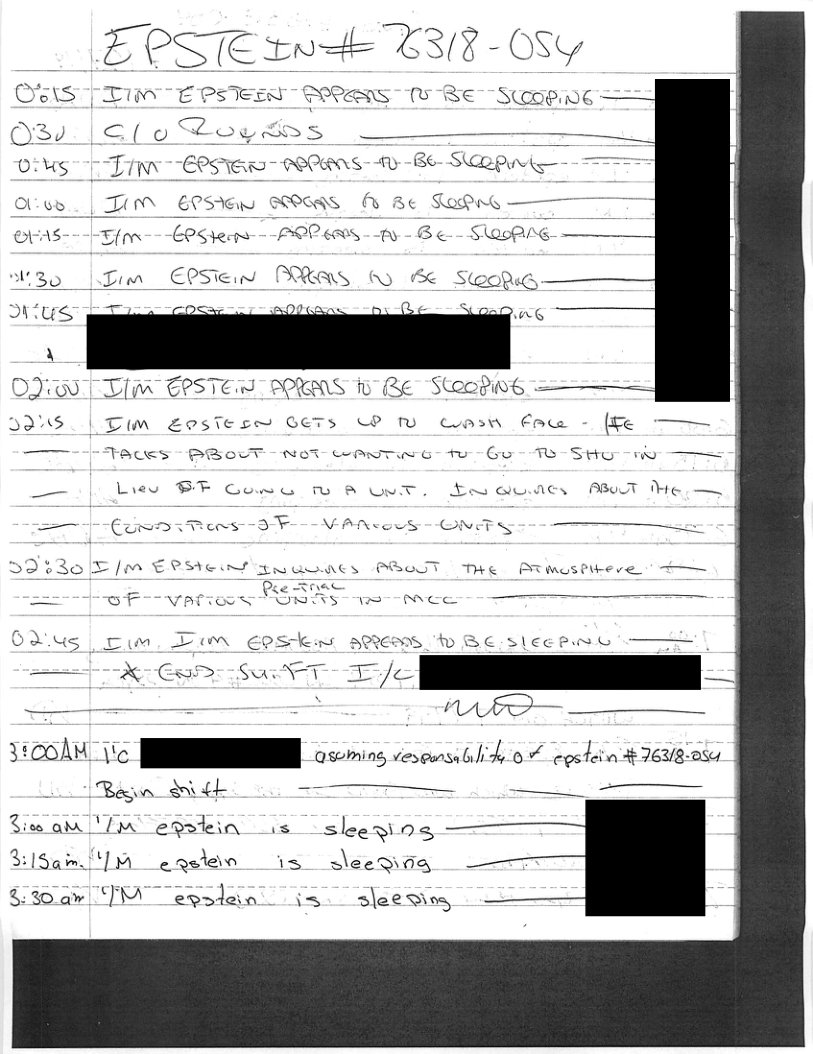 EPSTEIN # 76318-054
0:15 I/M EPSTEIN APPEARS TO BE SLEEPING
0:30 C/O ROUNDS
0:45 I/M EPSTEIN APPEARS TO BE SLEEPING
01:00 I/M EPSTEIN APPEARS TO BE SLEEPING
01:15 I/M EPSTEIN APPEARS TO BE SLEEPING
01:30 I/M EPSTEIN APPEARS TO BE SLEEPING
01:45 I/M EPSTEIN APPEARS TO BE SLEEPING
02:00 I/M EPSTEIN APPEARS TO BE SLEEPING
02:15 I/M EPSTEIN GETS UP TO WASH FACE - HE
TALKS ABOUT NOT WANTING TO GO TO SHU IN
LIEU OF GOING TO A UNIT. INQUIRES ABOUT THE
CONDITIONS OF VARIOUS UNITS
02:30 I/M EPSTEIN INQUIRES ABOUT THE ATMOSPHERE
OF VARIOUS Pre-TRIAL UNITS IN MCC
02:45 I/M I/M EPSTEIN APPEARS TO BE SLEEPING
* END SHIFT I/C
3:00AM I/C asuming responsability of epstein #76318-054
Begin shift
3:00 am I/M epstein is sleeping
3:15am. I/M epstein is sleeping
3:30 am I/M epstein is sleeping